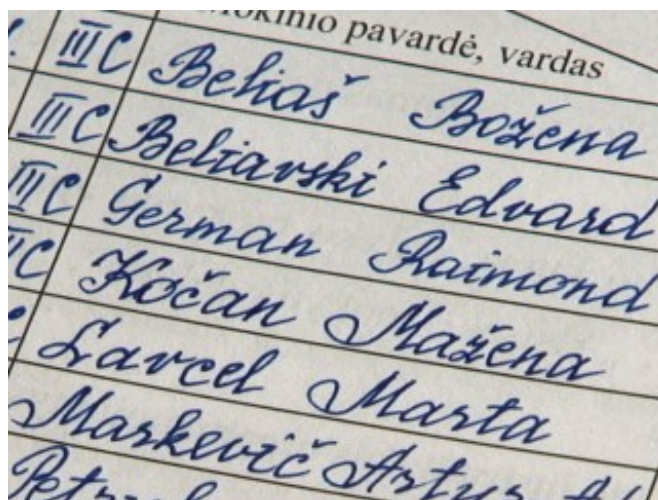 Mokinio pavardė, vardas
IIIC Beliaš Božena
IIIC Beliavski Edvard
IIIC German Raimond
IIIC Kočan Mažena
Lavcel Marta
Markevič Artur